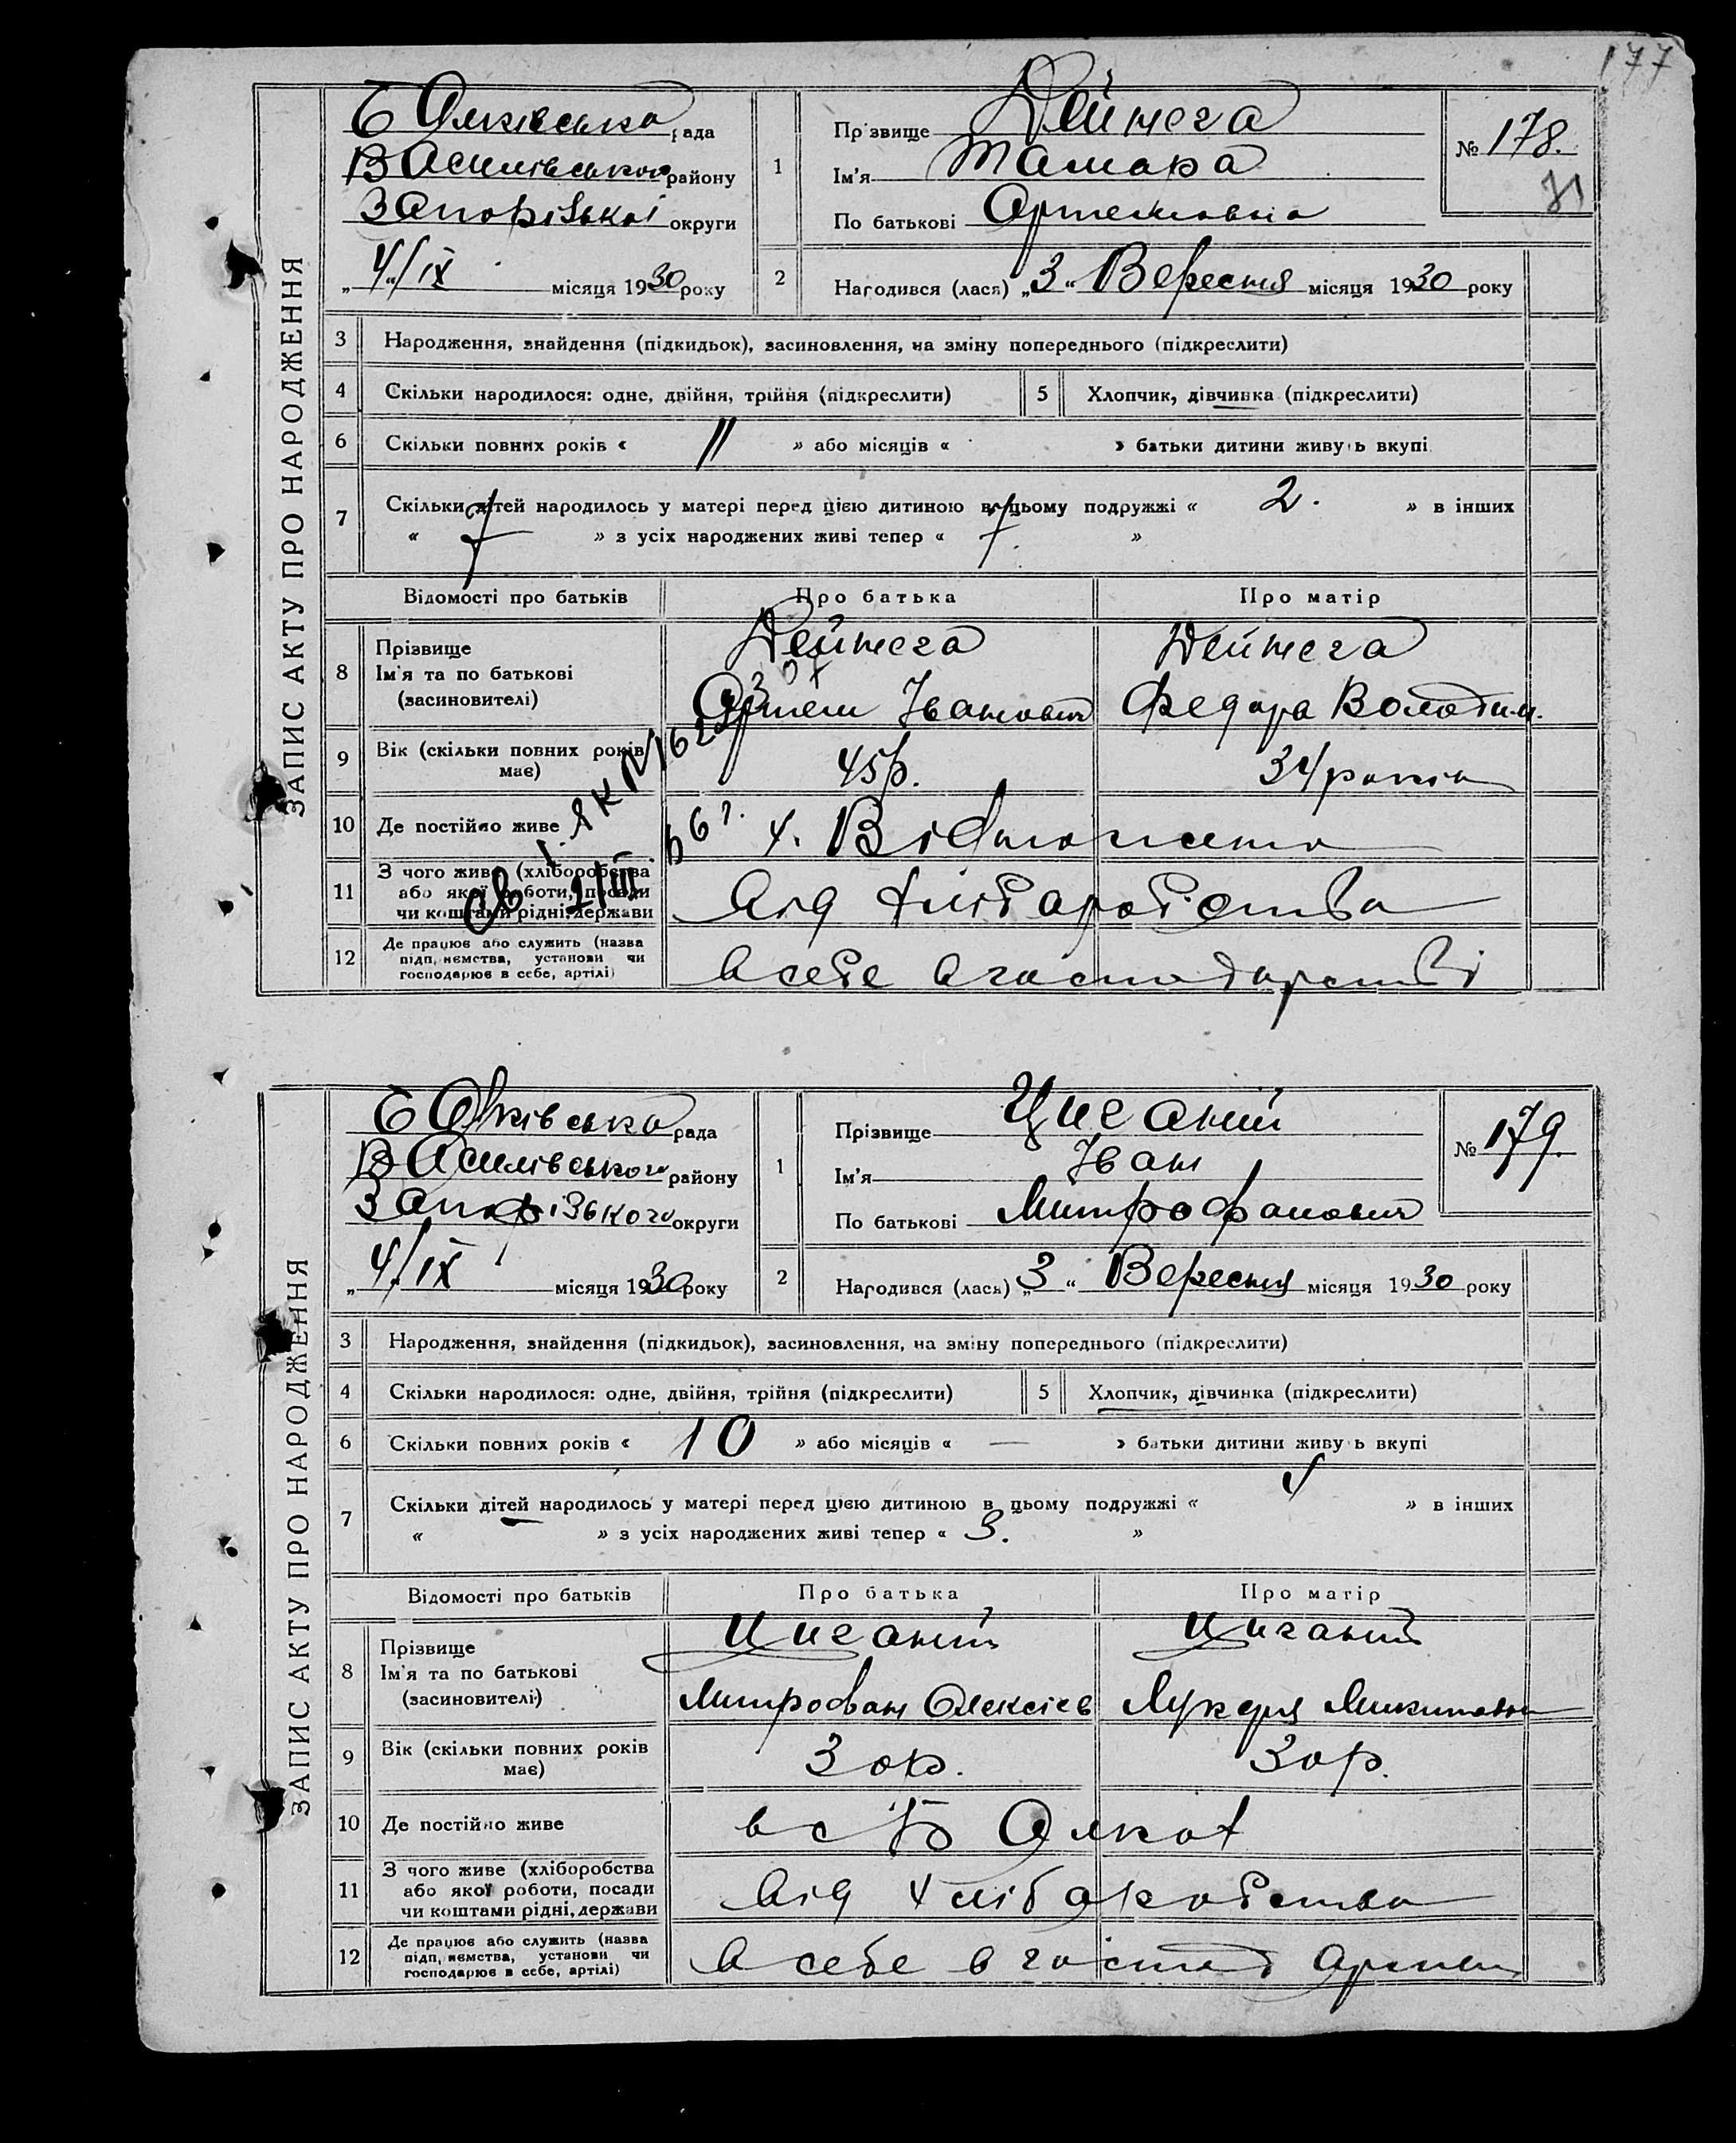 177
ЗАПИС АКТУ ПРО НАРОДЖЕННЯ
рада
Василівського району
округи
4/IX місяця 1930 року
1
Прізвище Дейнега
Ім'я Тамара
По батькові Артемовна
№ 178.
2
Народився (лася) „3“ Вересня місяця 1930 року
3 Народження, знайдення (підкидьок), засиновлення, на зміну попереднього (підкреслити)
4 Скільки народилося: одне, двійня, трійня (підкреслити)
5 Хлопчик, дівчинка (підкреслити)
6 Скільки повних років « 11 » або місяців « » батьки дитини живуть вкупі
7 Скільки дітей народилось у матері перед цією дитиною в цьому подружжі « 2. » в інших
« » з усіх народжених живі тепер « »
Відомості про батьків
Про батька
Про матір
8 Прізвище
Ім'я та по батькові
(засиновителі)
Дейнега
Артем Іванович
Дейнега
Федора Володим.
9 Вік (скільки повних років
має)
45р.
34 років
10 Де постійно живе
х.
11 З чого живе (хліборобства
або якої роботи, посади
чи коштами рідні, держави
від хліборобства
12 Де працює або служить (назва
підприємства, установи чи
господарює в себе, артілі)
в себе в господарстві
ЗАПИС АКТУ ПРО НАРОДЖЕННЯ
рада
Василівського району
Запорізького округи
4/IX місяця 1930 року
1
Прізвище Циганий
Ім'я Іван
По батькові Митрофанович
№ 179.
2
Народився (лася) „3“ Вересня місяця 1930 року
3 Народження, знайдення (підкидьок), засиновлення, на зміну попереднього (підкреслити)
4 Скільки народилося: одне, двійня, трійня (підкреслити)
5 Хлопчик, дівчинка (підкреслити)
6 Скільки повних років « 10 » або місяців « — » батьки дитини живуть вкупі
7 Скільки дітей народилось у матері перед цією дитиною в цьому подружжі « » в інших
« » з усіх народжених живі тепер « 3. »
Відомості про батьків
Про батька
Про матір
8 Прізвище
Ім'я та по батькові
(засиновителі)
Циганий
Митрофан Олексієв
Циганий
Лукерія Микитовна
9 Вік (скільки повних років
має)
30р.
30р.
10 Де постійно живе
в с
11 З чого живе (хліборобства
або якої роботи, посади
чи коштами рідні, держави
від хліборобства
12 Де працює або служить (назва
підприємства, установи чи
господарює в себе, артілі)
в себе в